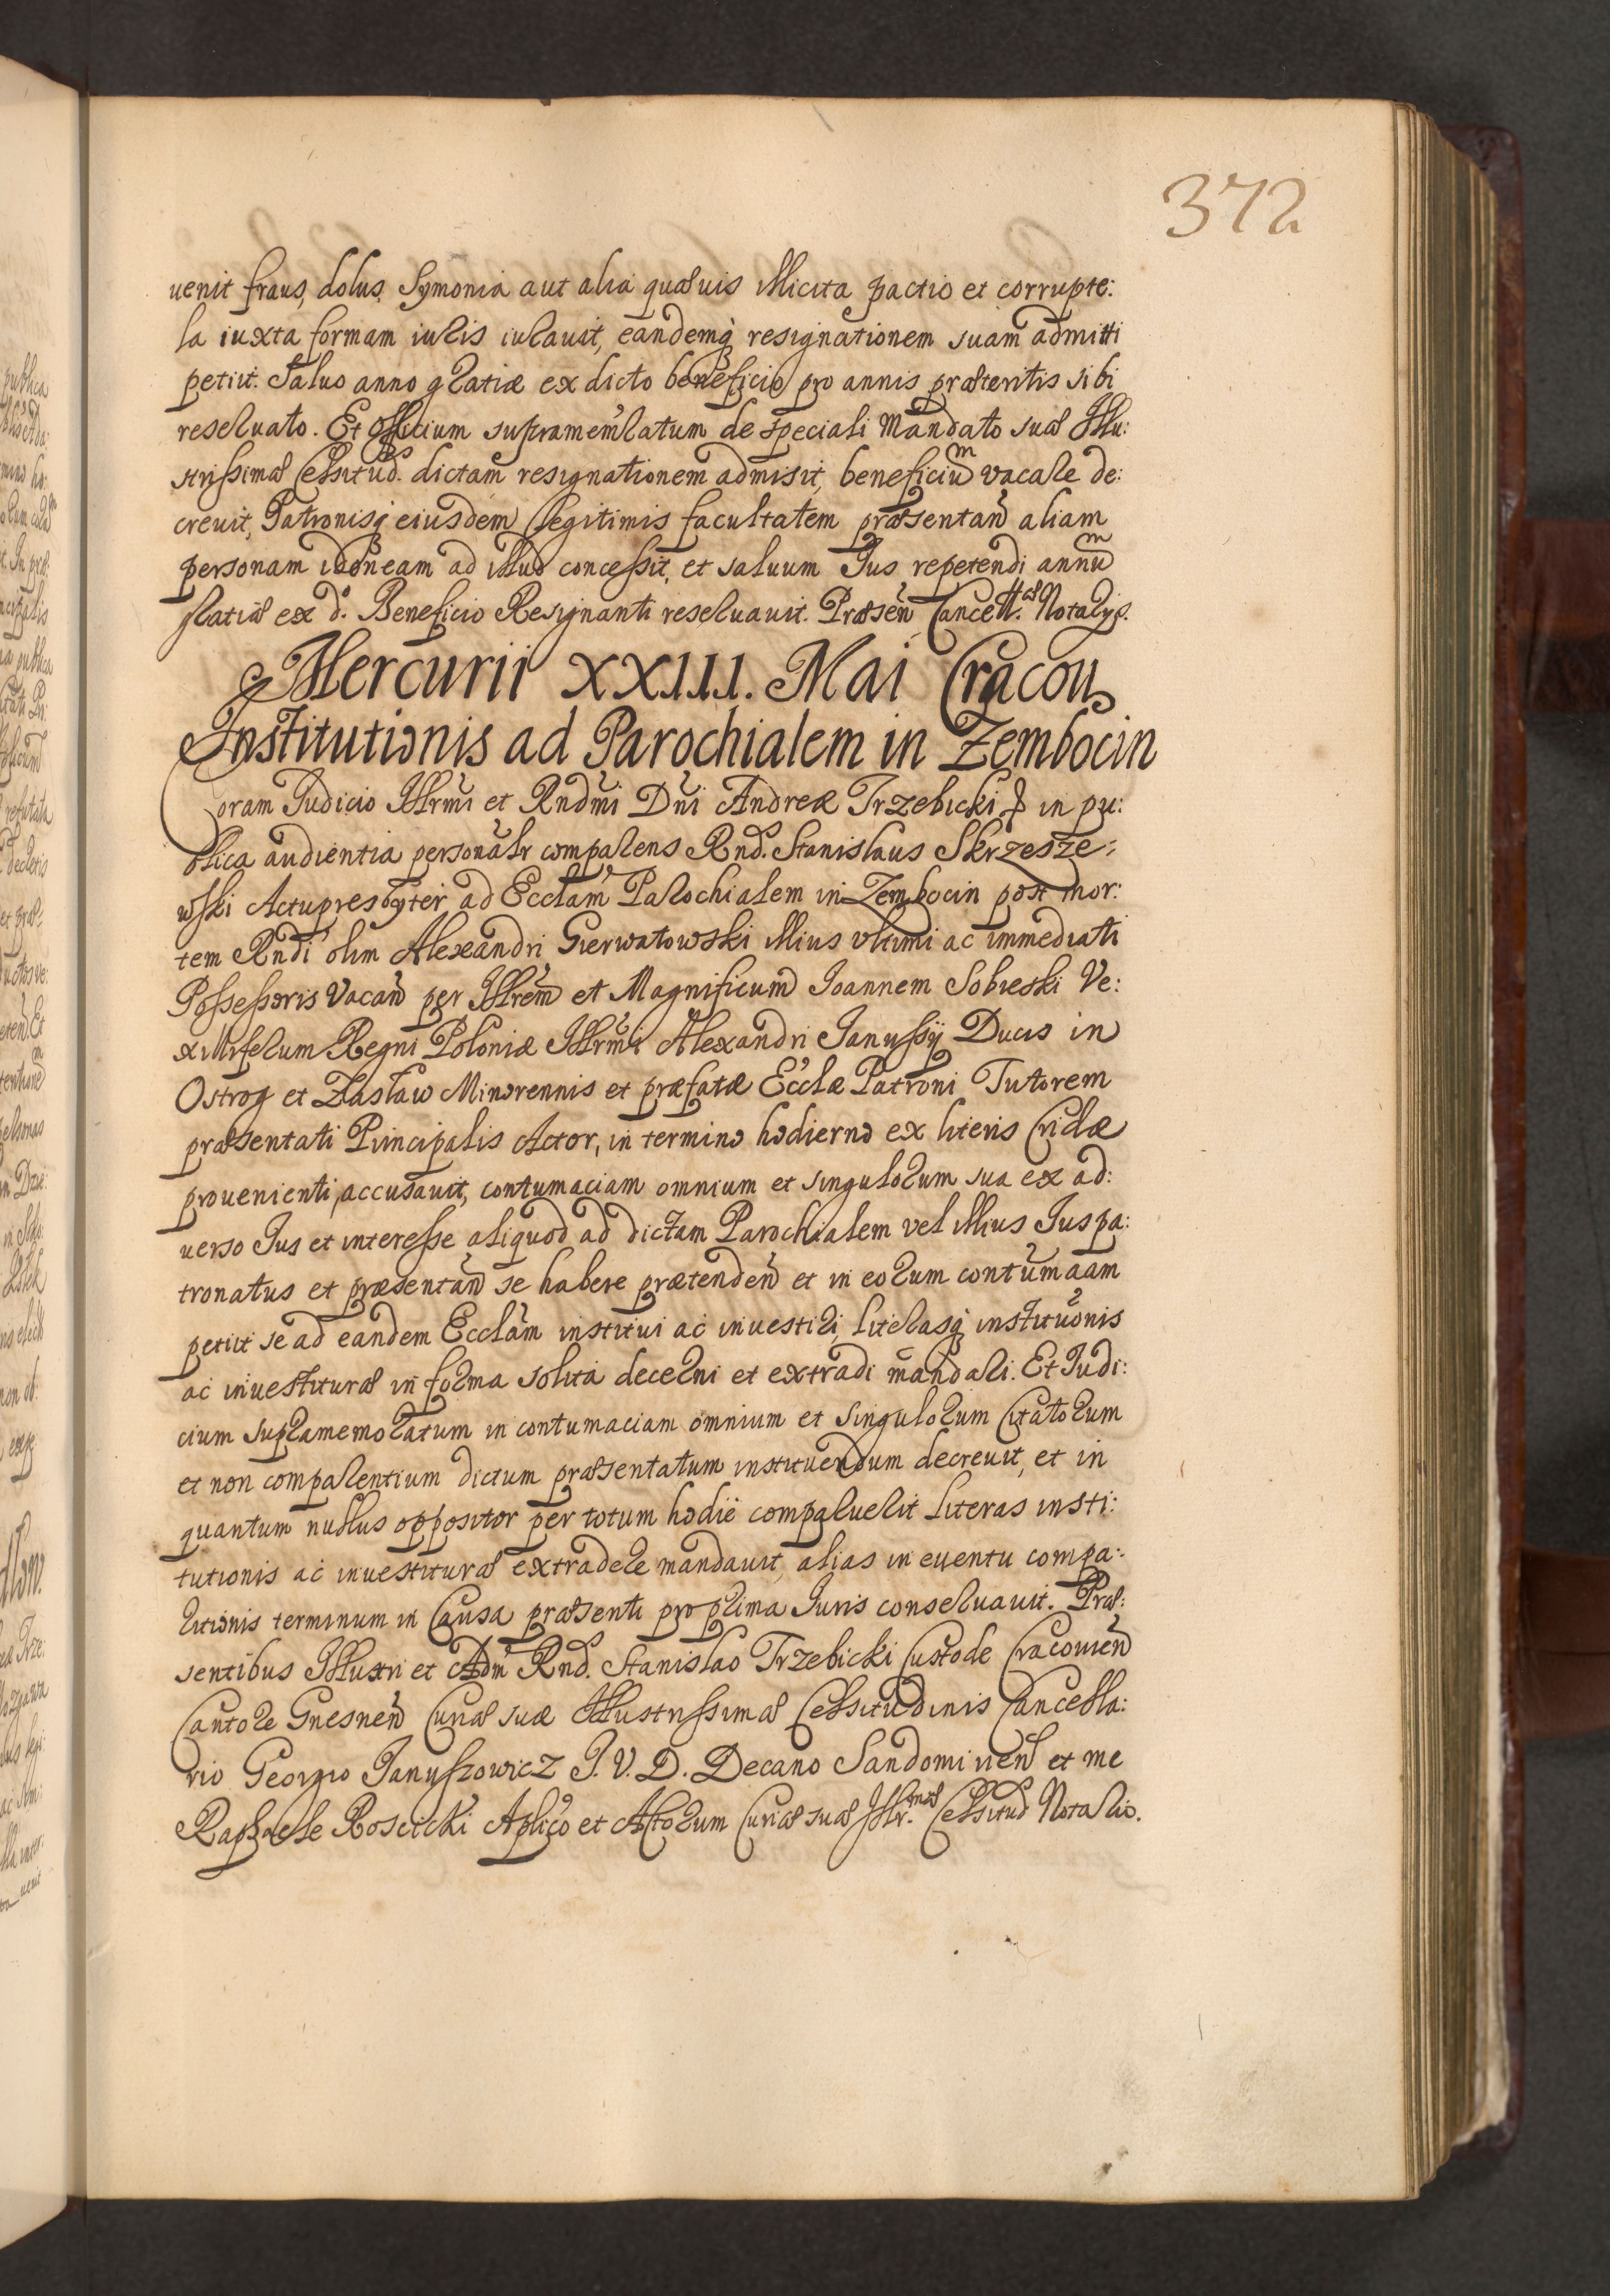 372
uenit fraus, dolus, Symonia aut alia quæuis illicita pactio et corrupte:
la iuxta formam iuris iurauit, eandemq́ resignationem suam admitti
petiit. Saluo anno gratiæ ex dicto beneficio pro annis præteritis sibi
reseruato. Et Officium supramem̃ratum de speciali Mandato suæ Illu:
strissimæ Celsitud. dictam resignationem admisit, beneficiũ vacare de:
creuit, Patronisq́ eiusdem legitimis facultatem præsentan̄ aliam
personam idoneam ad illud concessit, et saluum Jus repetendi annũ
gratiæ ex do. Beneficio Resignanti reseruauit. Præsen̄ Cancell. Notarys.
Mercurii XXIII. Mai Cracou
Institutionis ad Parochialem in Zembocin
Coram Judicio Illrmi et Rndmi Dni Andreæ Trzebicki in pu:
blica audientia personalr comparens Rnd. Stanislaus Skrzesze:
wski Actupresbyter ad Ecclam Parochialem in Zembocin post mor:
tem Rndi olim Alexandri Gierwatowski illius vltimi ac immediati
Possessoris Vacan̄ per Illrem et Magnificum Joannem Sobieski Ve:
xilliferum Regni Poloniæ Illrmi Alexandri Janussÿ Ducis in
Ostrog et Zasław Minorennis et præfatæ Ecclæ Patroni Tutorem
præsentati Principalis Actor, in termino hodierno ex literis Cridæ
prouenienti, accusauit, contumaciam omnium et singulorum sua ex ad:
uerso Jus et interesse aliquod ad dictam Parochialem vel illius Juspa:
tronatus et præsentan̄ se habere prætenden̄ et in eorum contumaciam
petiit se ad eandem Ecclam institui ac inuestiri, literasq́ institũonis
ac inuestituræ in forma solita decerni et extradi mandari. Et Judi:
cium supramemoratum in contumaciam omnium et singulorum Citatorum
et non comparentium dictum præsentatum instituendum decreuit, et in
quantum nullus oppositor per totum hodie comparuerit literas insti:
tutionis ac inuestituræ extradere mandauit, alias in euentu compa:
ritionis terminum in Causa præsenti pro prima Juris conseruauit. Præ:
sentibus Illustri et Adm Rnd. Stanislao Trzebicki Custode Cracouien̄
Cantore Gnesnen̄ Curiæ suæ Illustrissimæ Celsitudinis Cancella:
rio Georgio Januszowicz J. V. D. Decano Sandomirien̄ et me
Raphaele Roscicki Aplico et Actorum Curiæ suæ Illr.mæ Celsitud Notario.